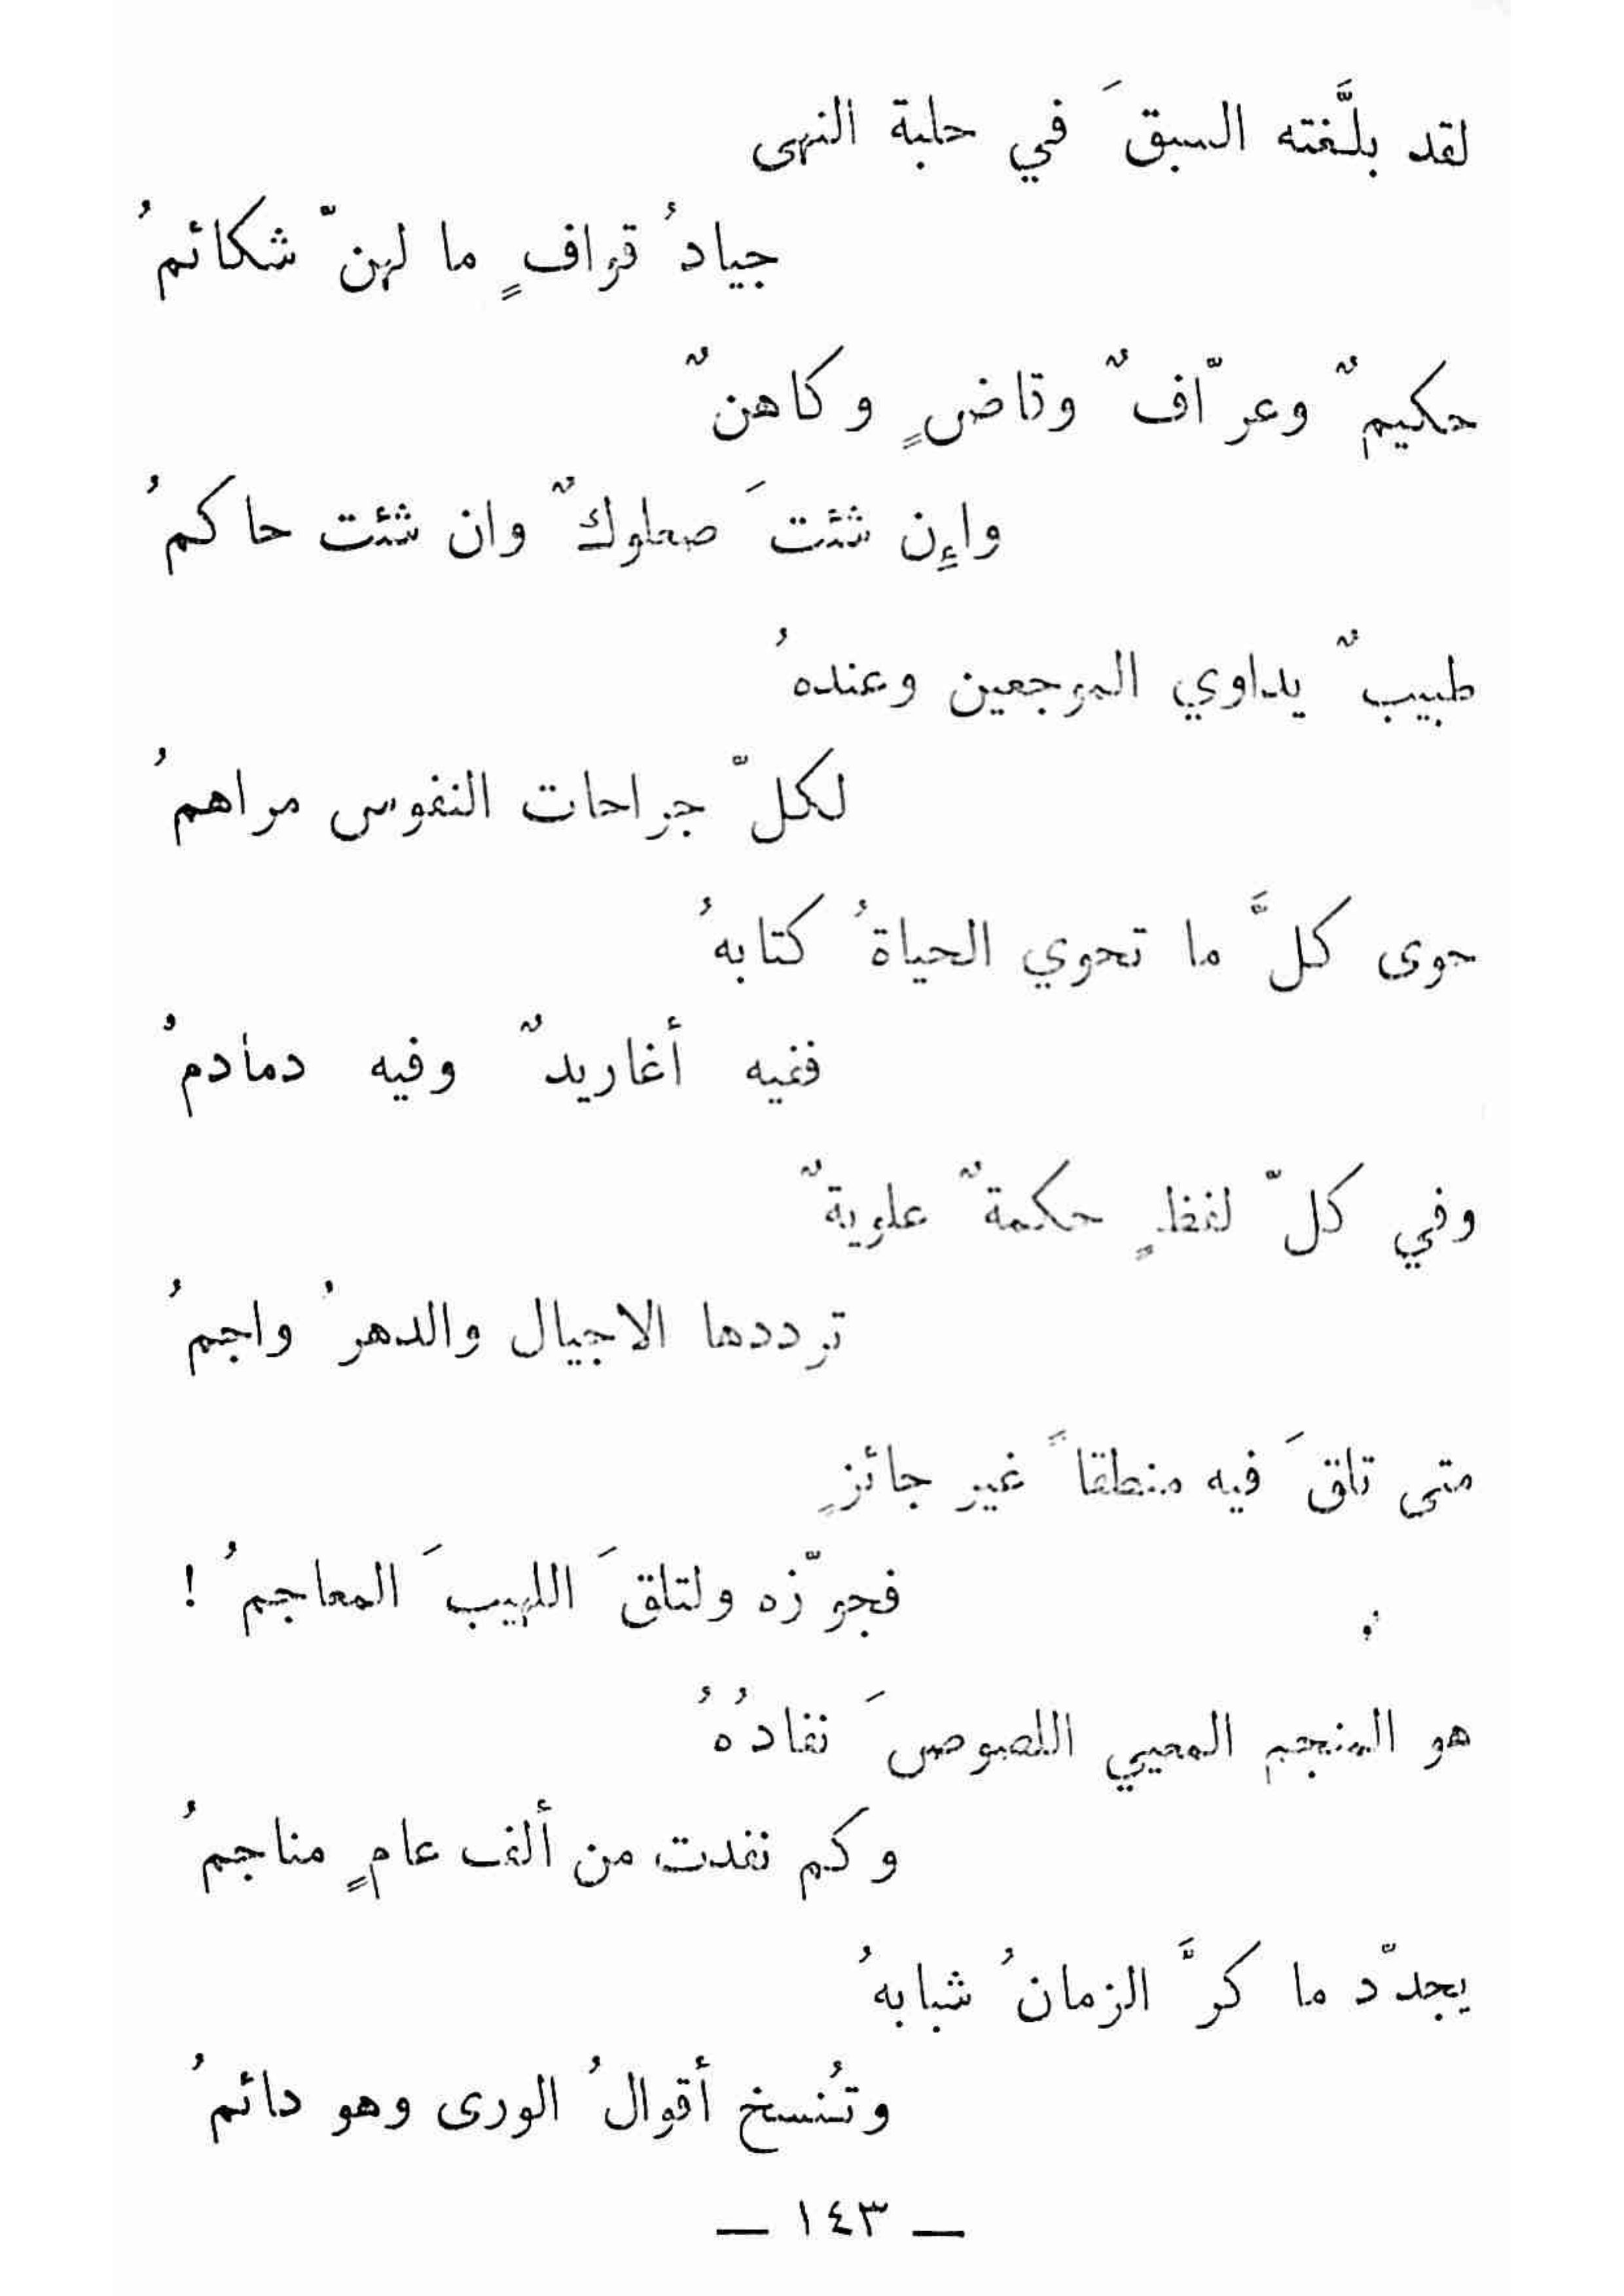 لقد بلَّغته السبقَ في حلبة النهى
جيادُ قوافٍ ما لهنّ شكائمُ
حكيمٌ وعرّافٌ وقاضٍ وكاهنٌ
وإِن شئتَ صعلوكٌ وان شئت حاكمُ
طبيبٌ يداوي الموجعين وعندهُ
لكلّ جراحات النفوس مراهمُ
حوى كلَّ ما تحوي الحياةُ كتابهُ
ففيه أغاريدٌ وفيه دمادمُ
وفي كلّ لفظٍ حكمةٌ علويةٌ
ترددها الاجيال والدهرُ واجمُ
متى تلقَ فيه منطقاً غير جائزٍ
فجوّزه ولتلقَ اللهيبَ المعاجمُ !
هو المنجم المحيي اللصوصَ نفادُهُ
وكم نفدت من ألف عامٍ مناجمُ
يجدّد ما كرَّ الزمانُ شبابهُ
وتُنسخ أقوالُ الورى وهو دائمُ
— ١٤٣ —